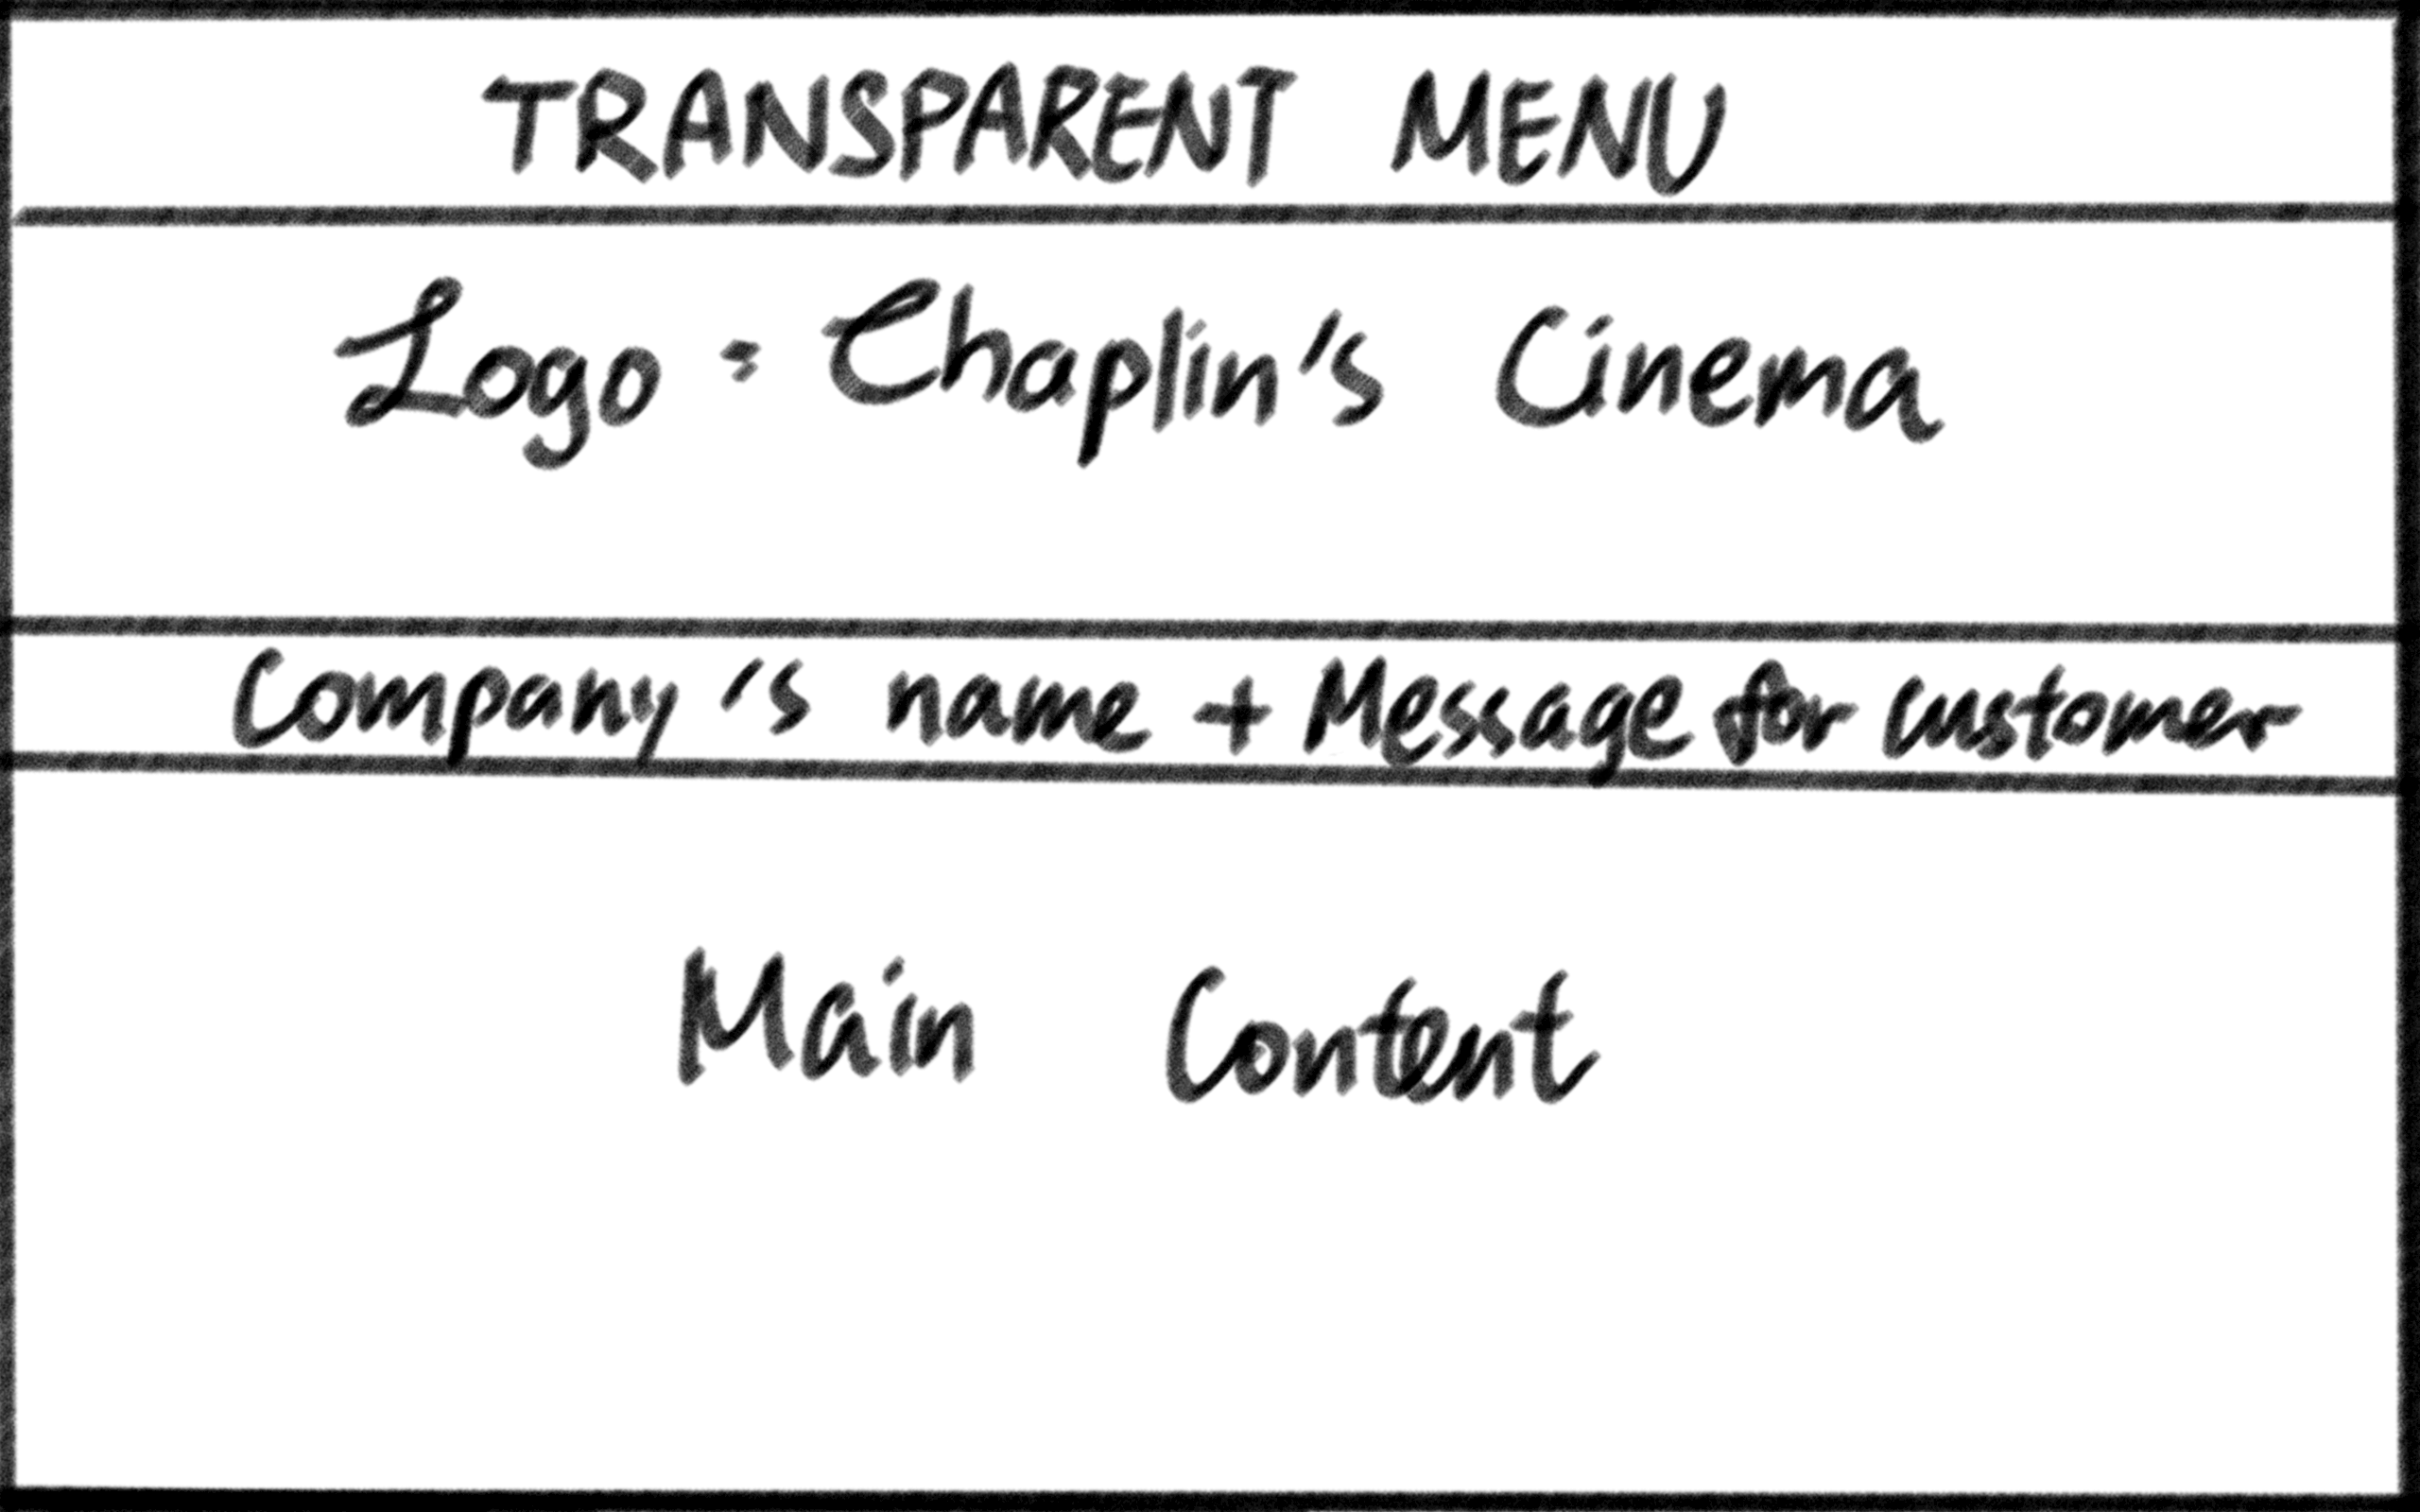 TRANSPARENT MENU
Logo : Chaplin's Cinema
Company's name + Message for customer
Main Content